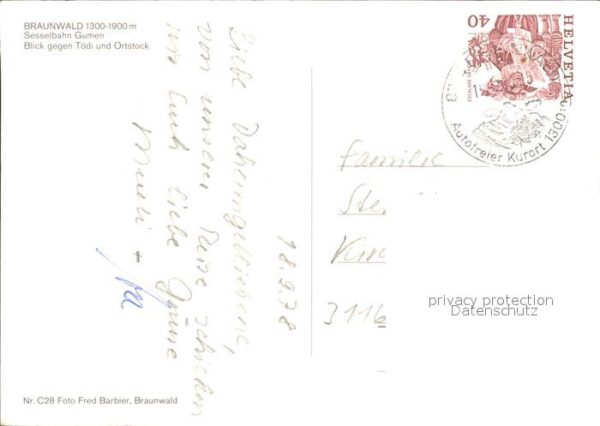 BRAUNWALD 1300-1900 m
Sesselbahn Gumen
Blick gegen Tödi und Ortstock
HELVETIA
40
Autofreier Kurort 1300
18.9.78
Liebe Daheimgebliebene,
von unserer Reise schicken
wir Euch liebe Grüsse
Familie
Ste
3116
privacy protection
Datenschutz
Nr. C28 Foto Fred Barbier, Braunwald